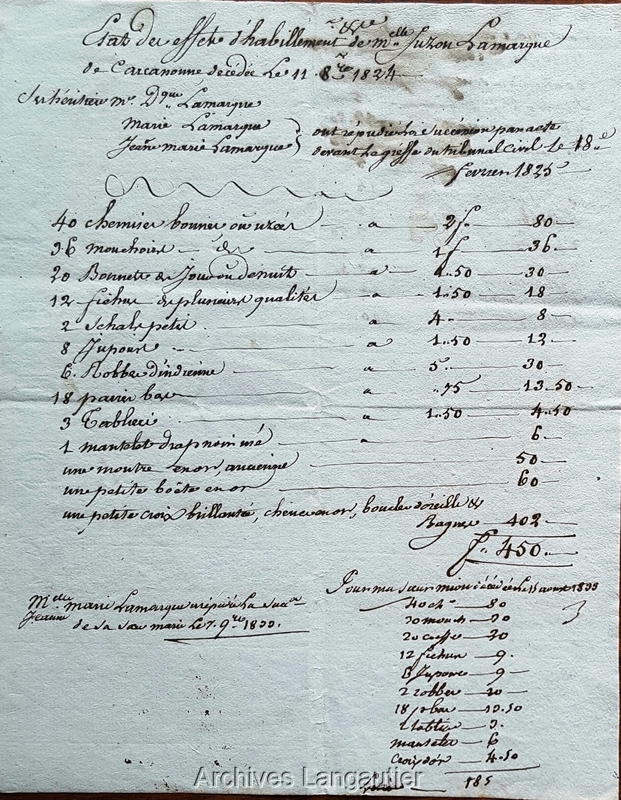 Etat des effets d'habillement &ce de Melle Suzon Lamarque
de Carcanonne decedée Le 11 8bre 1824
Ses héritiers Mr. Dque Lamarque
Marie Lamarque
Jeanne marie Lamarque
ont répudié la succession par acte
devant le greffe du tribunal Civil le 18
fevrier 1825
40 chemises bonnes ou uzées a 2 f. 80
36 mouchoirs a 1 f 36
20 Bonnets de Jour ou de nuit a 1..50 30
12 fichus de plusieurs qualités a 1..50 18
2 Schals petit a 4 8
8 Jupons a 1..50 12
6 Robbes d'indienne a 5 30
18 paires bas a ..75 13..50
3 Tabliers a 1..50 4..50
1 mantelet drap noir usé a 6
une montre en or, ancienne 50
une petite boëte en or 60
une petite croix brillantée, chene en or, boucles d'oreille &
Bagues 402
f. 450
Pour ma sœur mion décédée le 15 aout 1833
Melle Jeanne marie Lamarque a répudié la succon
de sa sœur marie le 7. 9bre 1833.
40 ch. 80
30 mouch 30
20 coeffes 20
12 fichus 9.
6 Jupons 9
2 robbes 10
18 p bas 13.50
tablie 3.
mantelet 6
Croix d'or 4.50
185
Archives Langautier